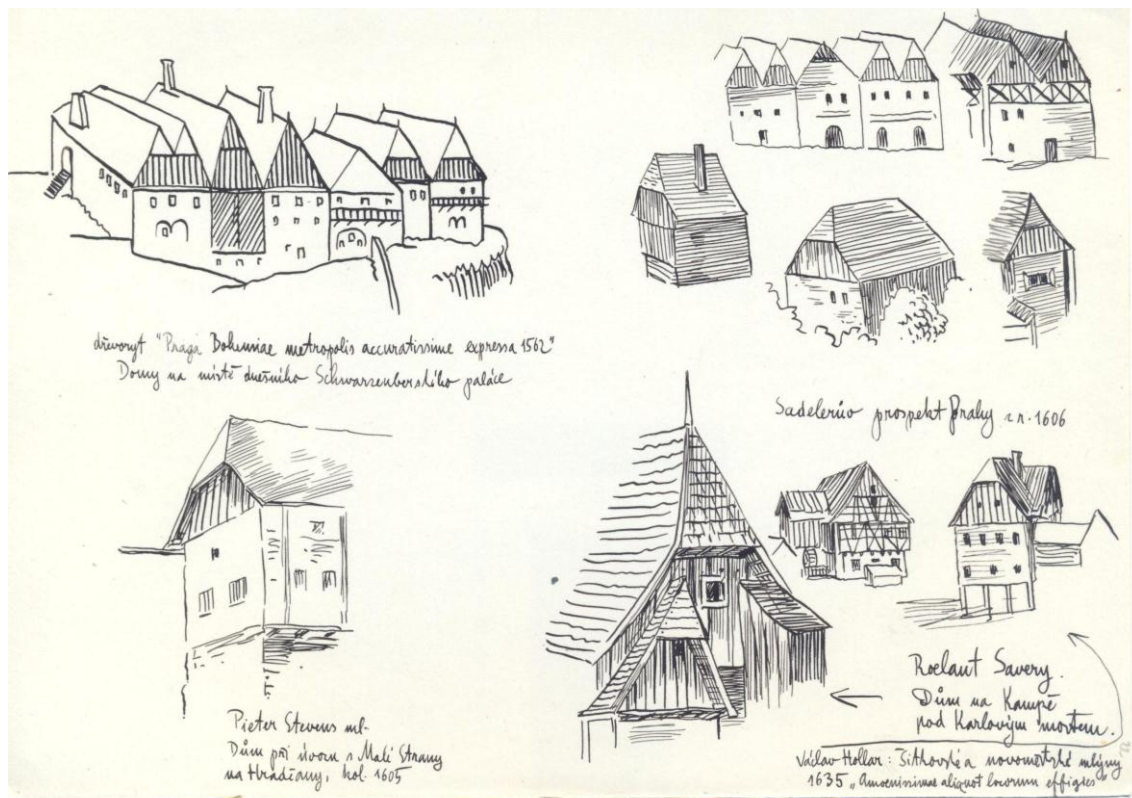 dřevoryt "Praga Bohemiae metropolis accuratissime expressa 1562"
Domy na místě dnešního Schwarzenberského paláce
Sadelerův prospekt Prahy z r. 1606
Pieter Stevens ml.
Dům při úvozu z Malé Strany
na Hradčany, kol. 1605
Roelant Savery.
Dům na Kampě
pod Karlovým mostem.
Václav Hollar: Šitkovské a novoměstské mlýny
1635 „Amoenissimae aliquot locorum effigies"